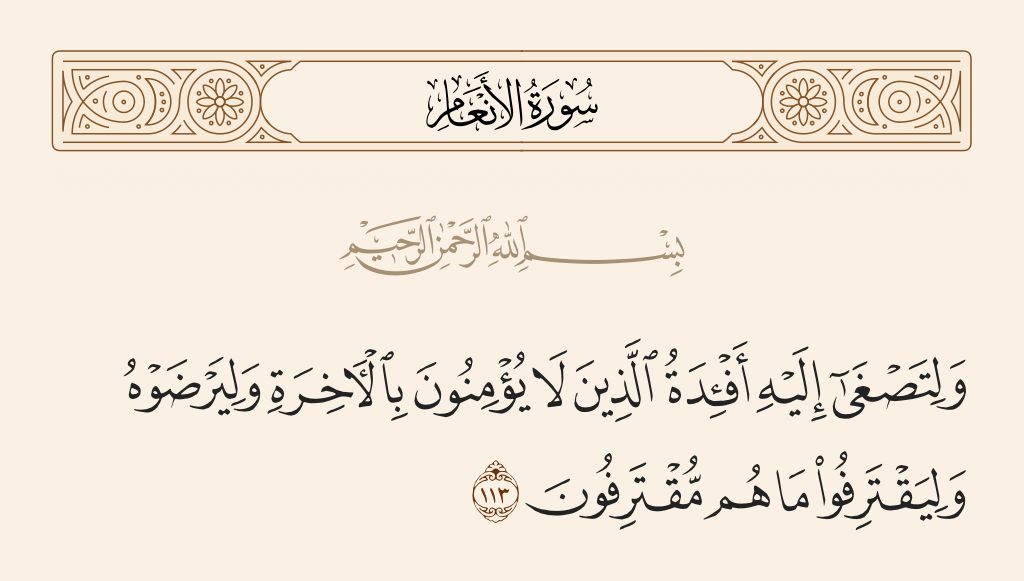 سُورَةُ الأَنْعَامِ
بِسْمِ ٱللَّهِ ٱلرَّحْمَٰنِ ٱلرَّحِيمِ
وَلِتَصْغَىٰٓ إِلَيْهِ أَفْـِٔدَةُ ٱلَّذِينَ لَا يُؤْمِنُونَ بِٱلْـَٔاخِرَةِ وَلِيَرْضَوْهُ
وَلِيَقْتَرِفُوا۟ مَا هُم مُّقْتَرِفُونَ ١١٣